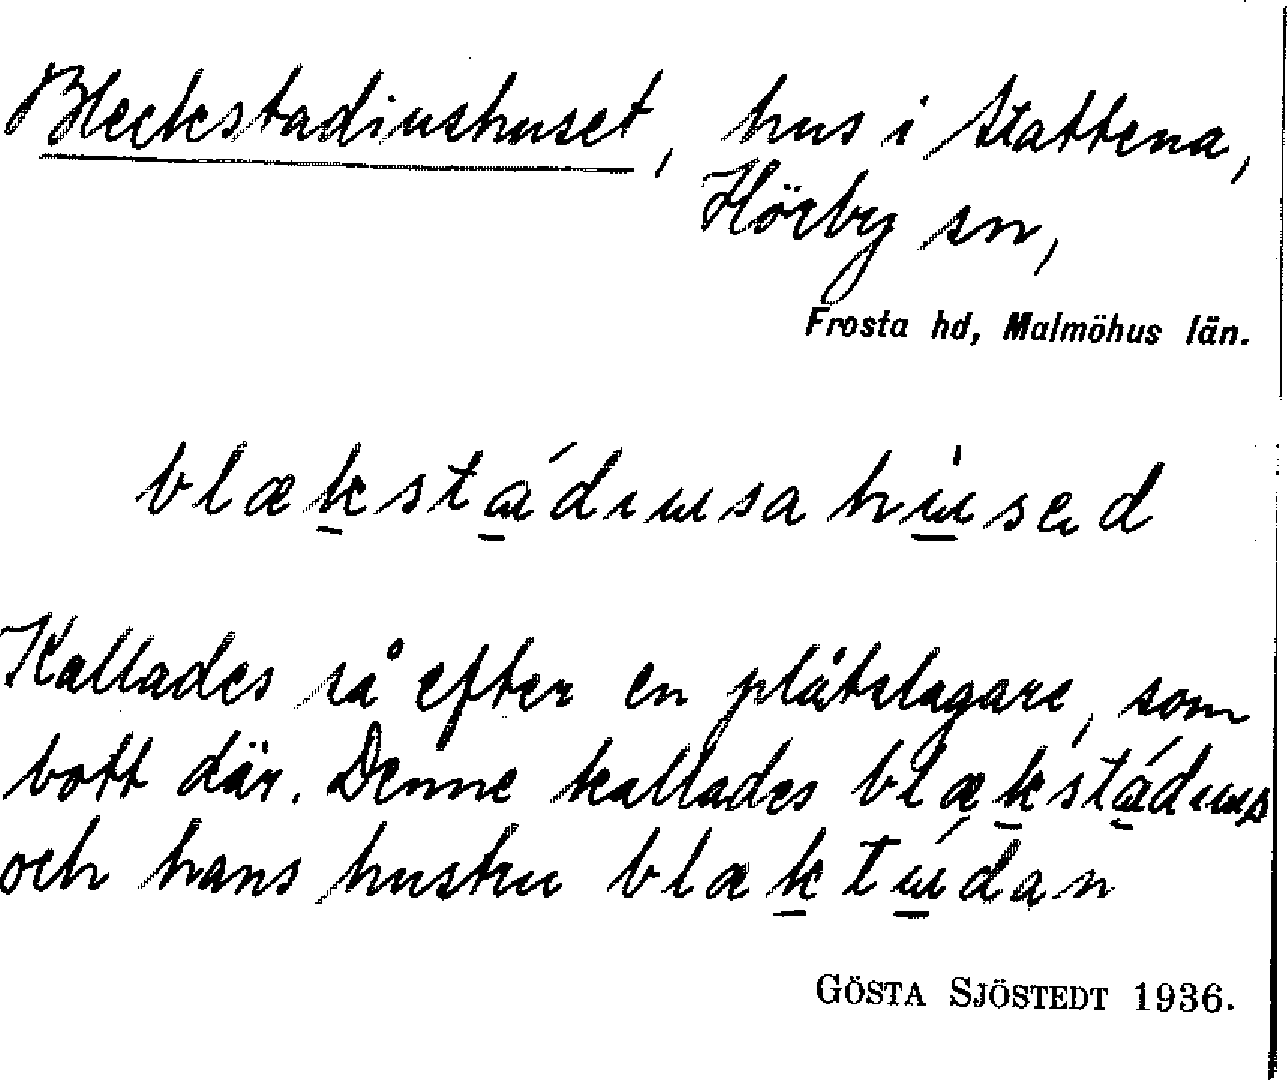 Bleckstadiushuset, hus i Stattena,
Hörby sn,
Frosta hd, Malmöhus län.
blækstádiusa húsed
Kallades så efter en plåtslagare, som
bott där. Denne kallades blækstádius
och hans hustru blæktúdan
GÖSTA SJÖSTEDT 1936.